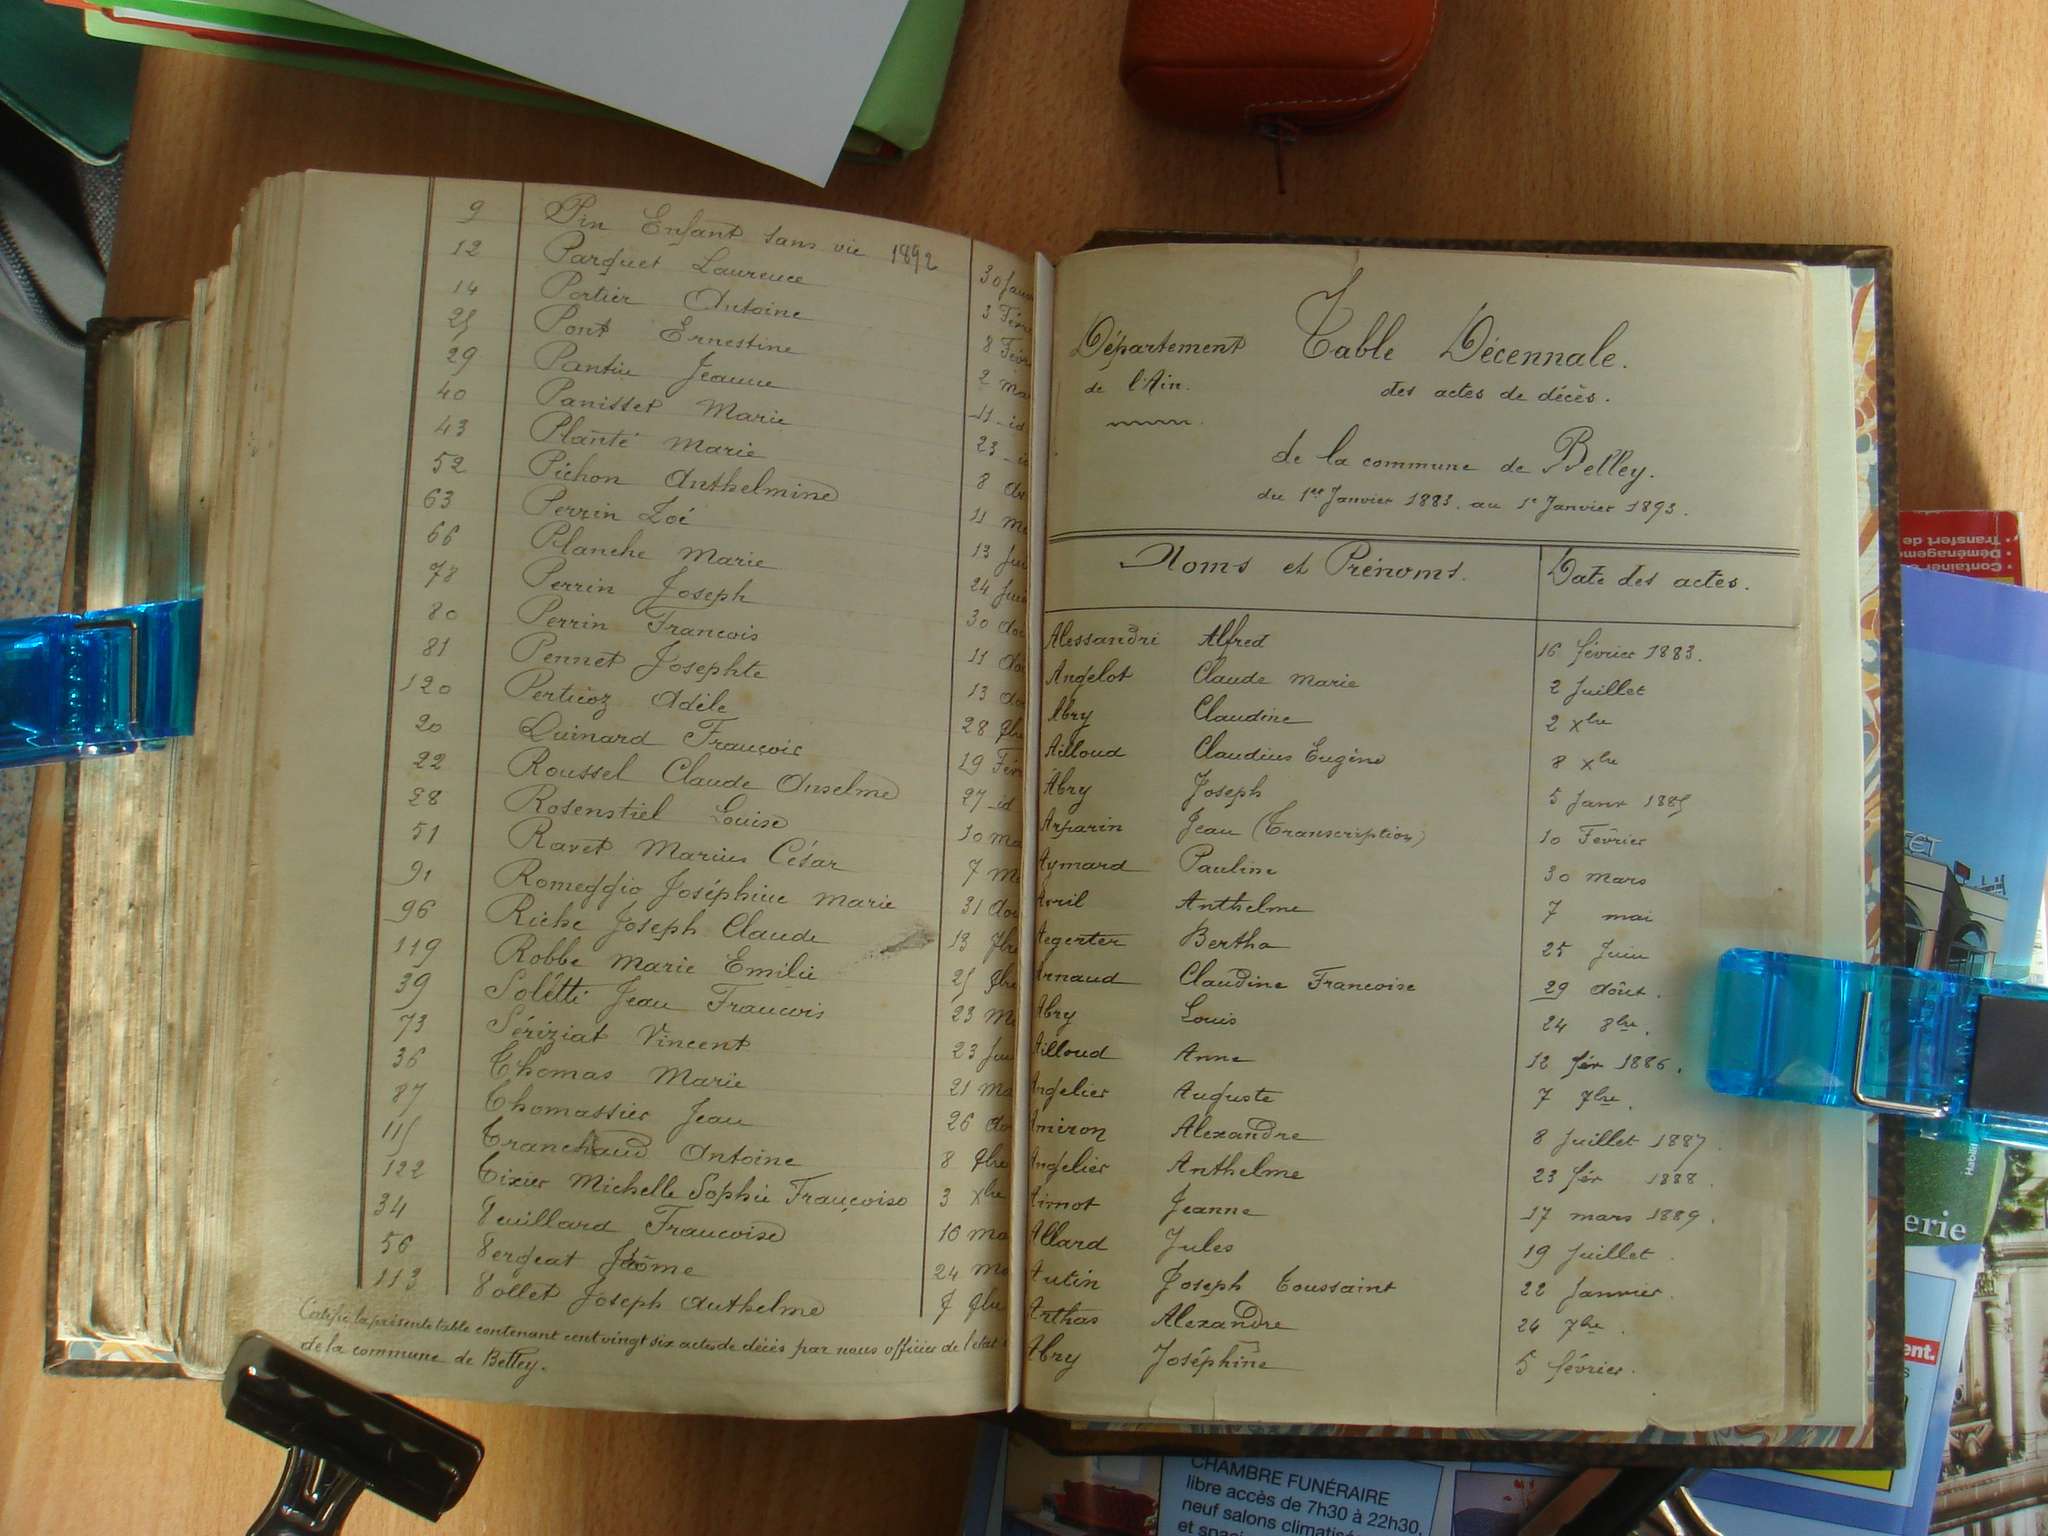 9 Pin Enfant sans vie 1892 30 Janv
12 Parquet Laurence 3 Févr
14 Portier Antoine 8 Févr
25 Pont Ernestine 2 ma
29 Pantin Jeanne 11 id
40 Panisset Marie 23
43 Planté Marie 8
52 Pichon Anthelmine 11
63 Perrin Zoé 13
66 Planche Marie 24 Juin
78 Perrin Joseph 30
80 Perrin François 11
81 Pennet Josephte 13
120 Perticoz Adèle 28
20 Quinard François 19 Févr
22 Roussel Claude Anselme 27 id
28 Rosenstiel Louise 10 ma
51 Ravet Marius César 7 m
91 Romeggio Joséphine Marie 31
96 Riche Joseph Claude 13
119 Robbe Marie Emilie 25
39 Solétti Jean François 23
73 Sériziat Vincent 23
36 Thomas Marie 21 ma
87 Thomassier Jean 26
115 Tranchand Antoine 8
122 Tixier Michelle Sophie Françoise 3 Xbre
34 Veuillard Françoise 16 ma
56 Vergeat Jérôme 24 ma
113 Vollet Joseph Anthelme
Certifié la présente table contenant cent vingt six actes de décès par nous officier de l'état
de la commune de Belley.
Département
de l'Ain.
Table Décennale.
des actes de décès.
de la commune de Belley.
du 1er Janvier 1883. au 1er Janvier 1893.
Noms et Prénoms. Date des actes.
Alessandri Alfred 16 février 1883.
Angelot Claude Marie 2 Juillet
Abry Claudine 2 Xbre
Ailloud Claudius Eugène 8 Xbre
Abry Joseph 5 Janr 1885
Arparin Jean (Transcription) 10 Février
Aymard Pauline 30 mars
Avril Anthelme 7 mai
Aegerter Bertha 25 Juin
Arnaud Claudine Françoise 29 Août.
Abry Louis 24 8bre.
Ailloud Anne 12 fév 1886.
Angelier Auguste 7 7bre.
Ameron Alexandre 8 Juillet 1887.
Angelier Anthelme 23 fév 1888.
Aimot Jeanne 17 mars 1889.
Allard Jules 19 Juillet.
Autin Joseph Toussaint 22 Janvier.
Arthas Alexandre 24 7bre.
Abry Joséphine 5 février.
CHAMBRE FUNÉRAIRE
libre accès de 7h30 à 22h30,
neuf salons climatisé
et
Container
Déménagem
Transfert de
erie
ent.